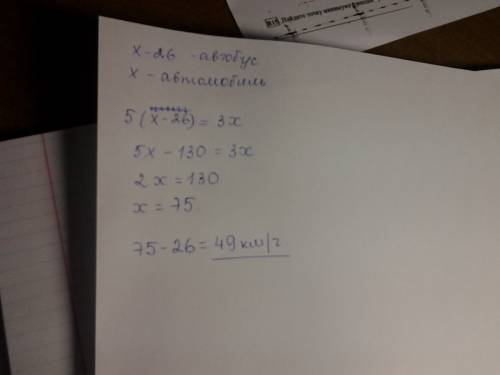 x-26 -автобус
x - автомобиль
5(x-26) = 3x
5x - 130 = 3x
2x = 130
x = 75
75-26 = 49 км/ч